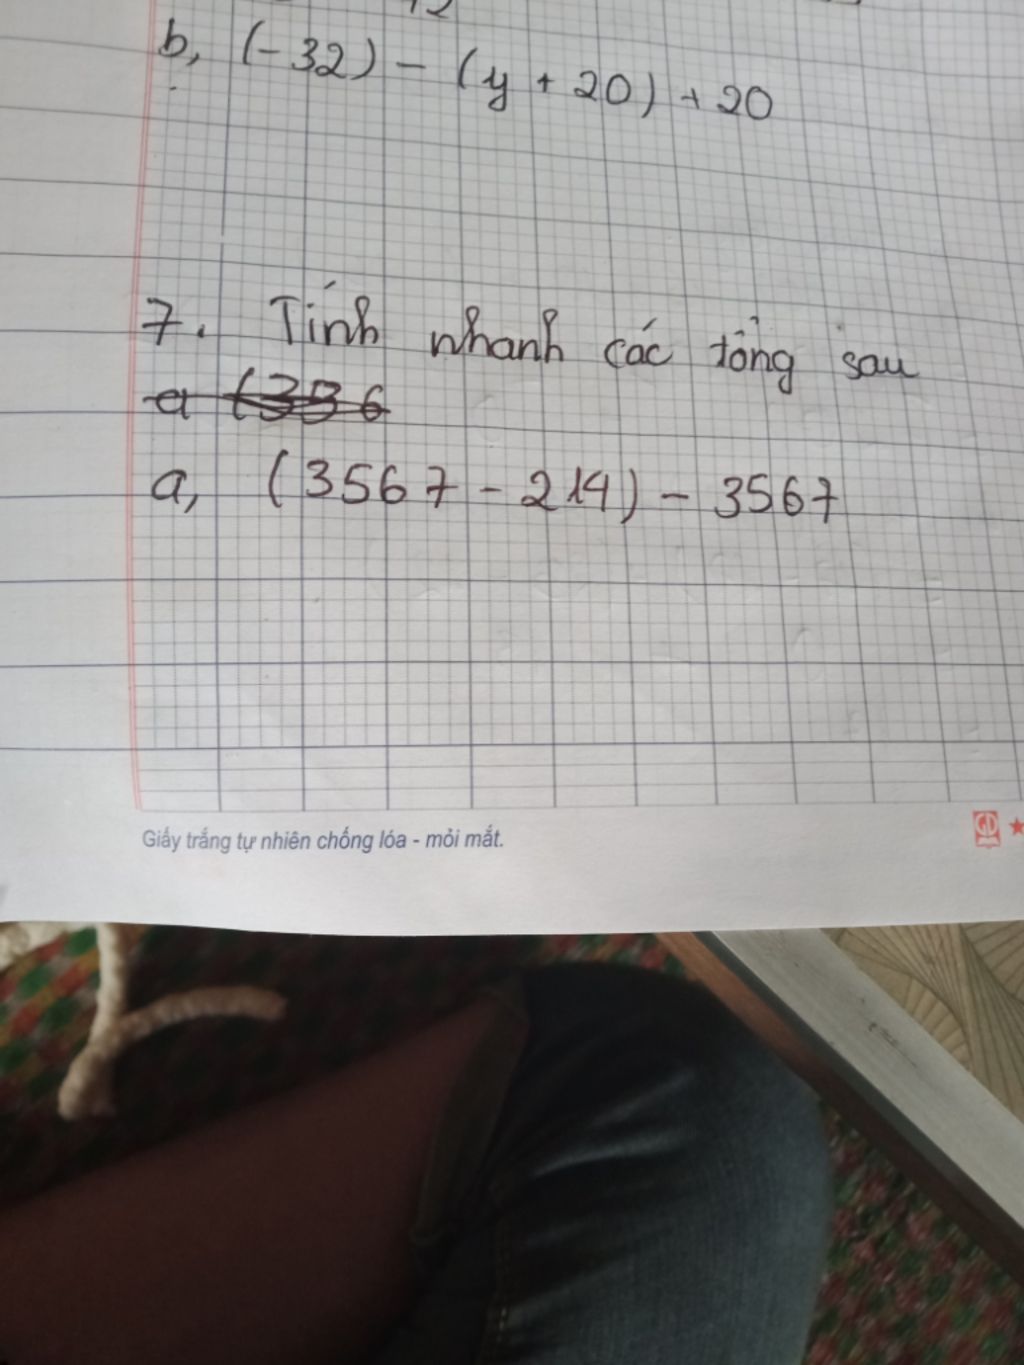 b, (-32) - (y + 20) + 20
7. Tính nhanh các tổng sau
a, (3567 - 214) - 3567
Giấy trắng tự nhiên chống lóa - mỏi mắt.
GD